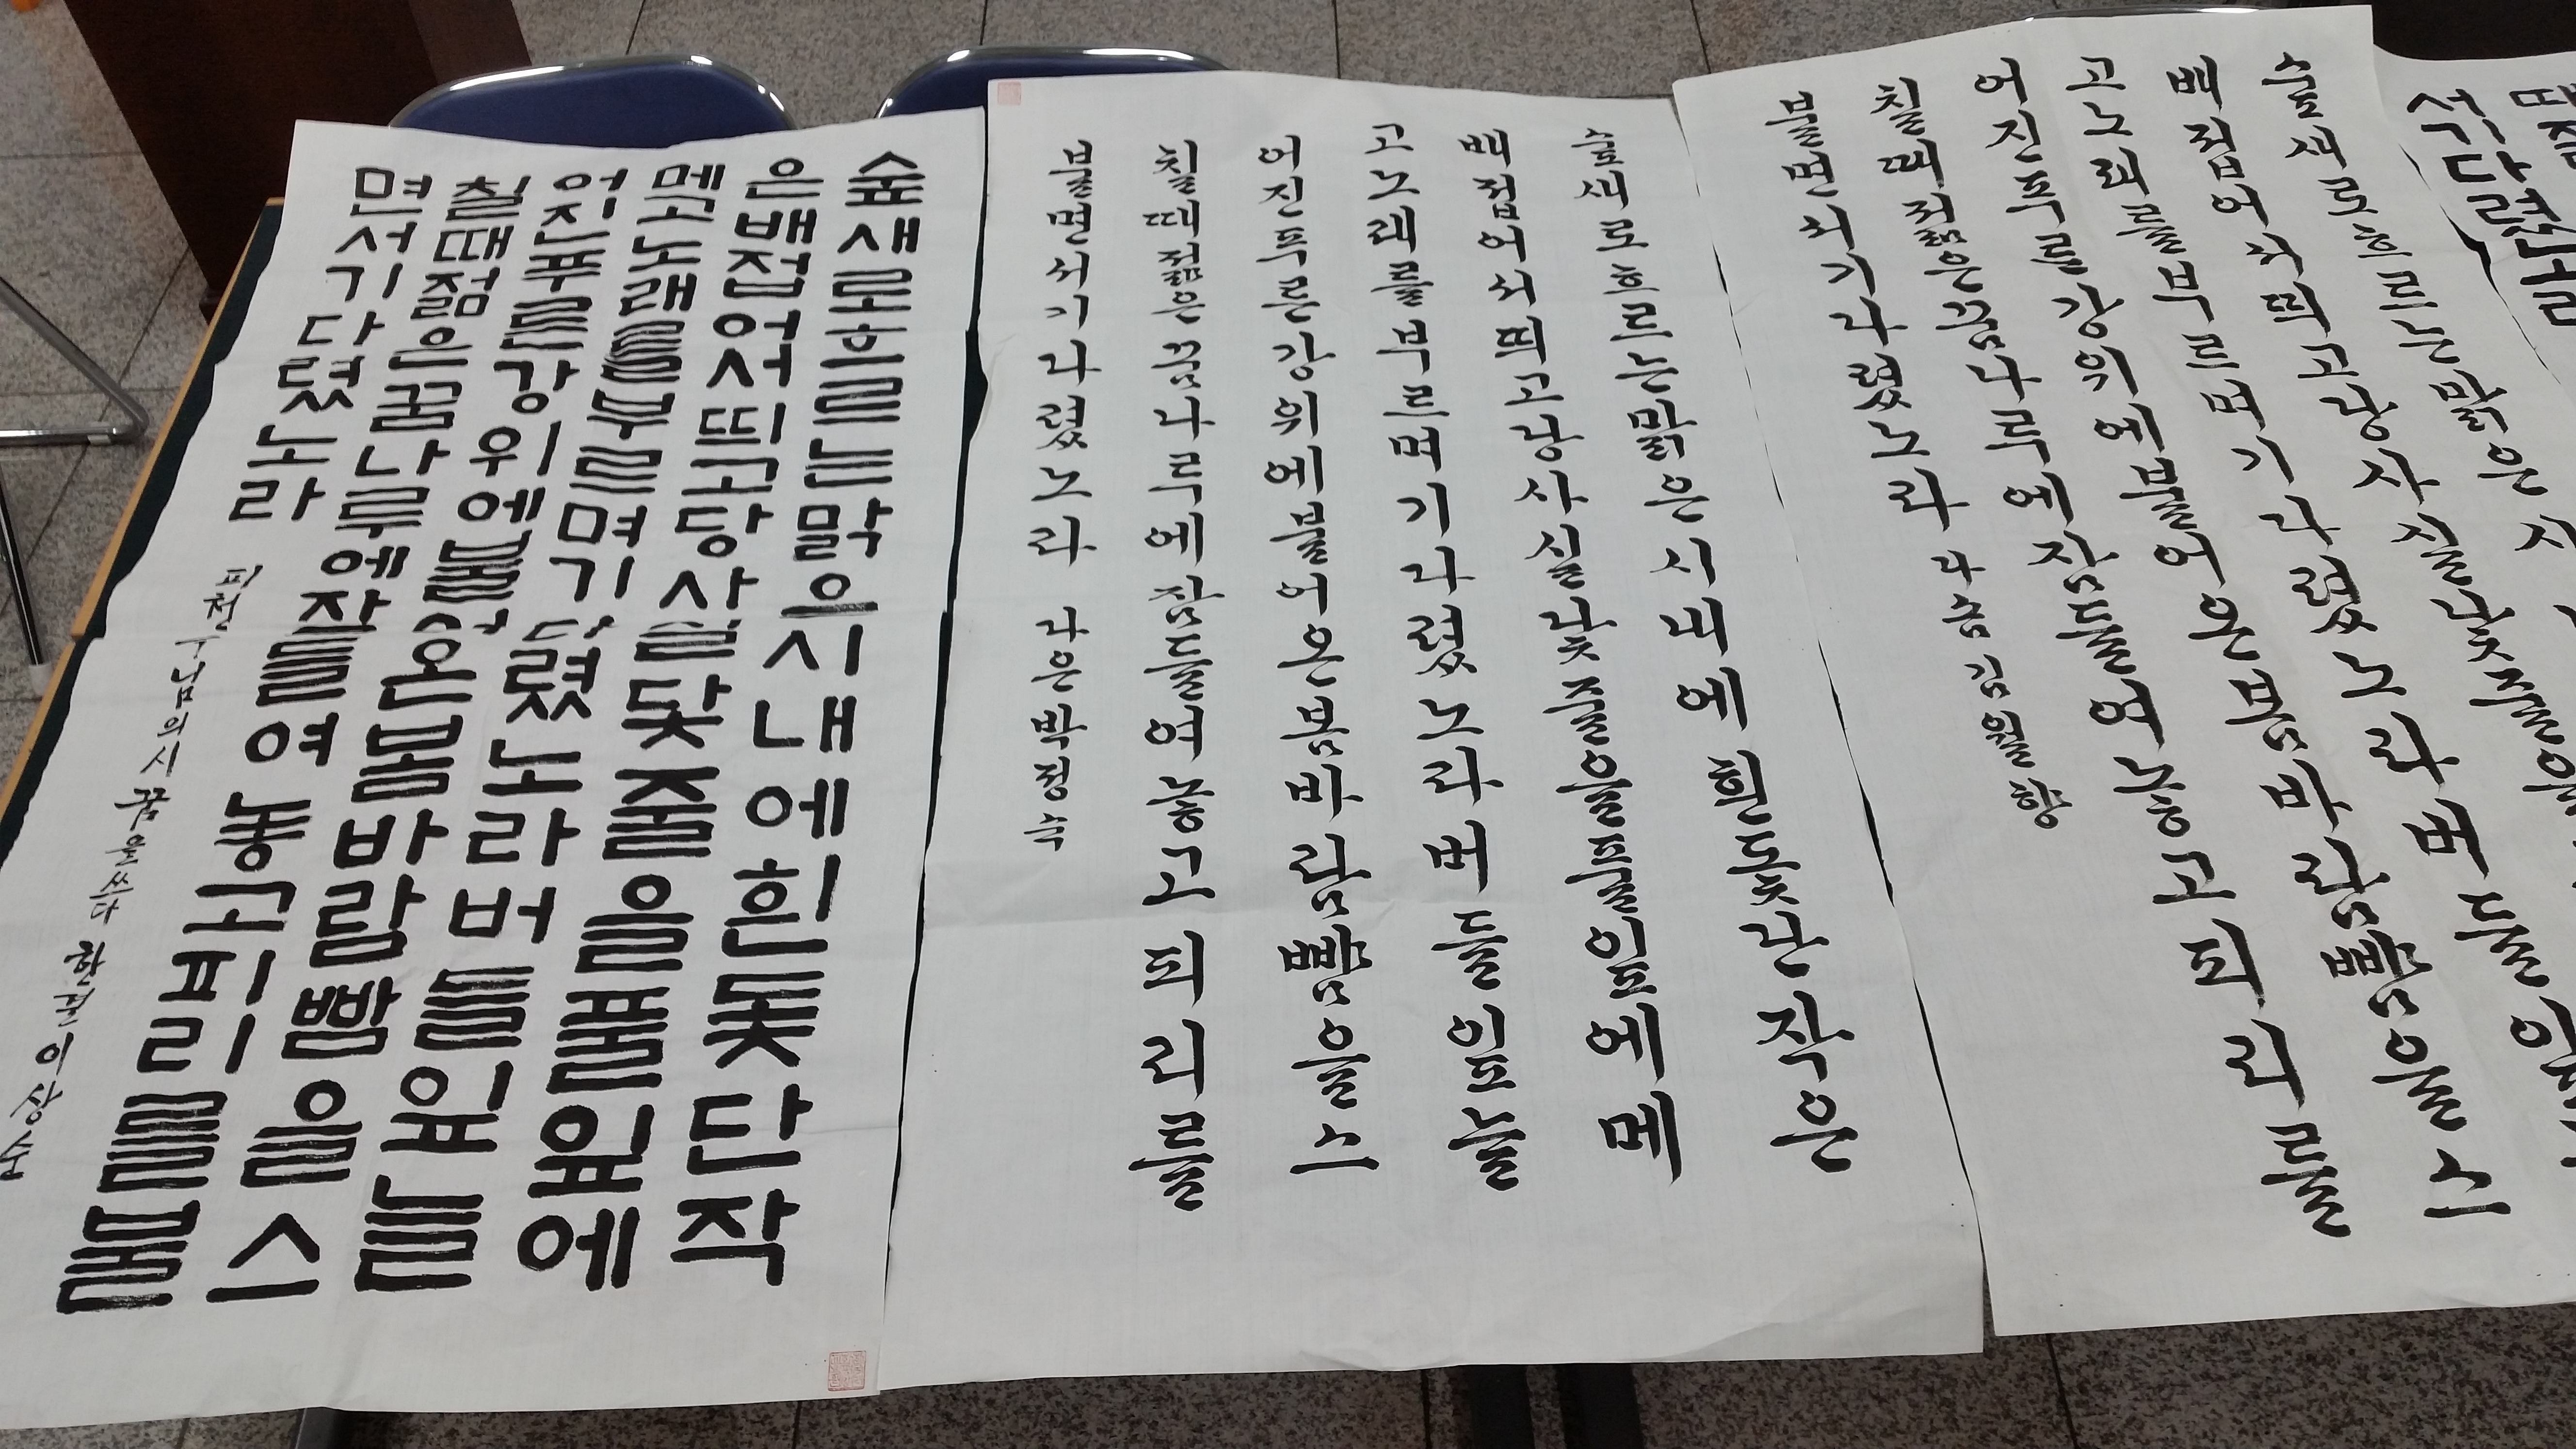 숲새로흐르는맑은시내에흰돛단작
은배접어서띄고당사실닻줄을풀잎에
메고노래를부르며기다렸노라버들잎늘
어진푸른강위에불어온봄바람뺨을스
칠때젊은꿈나루에잠들여놓고피리를불
면서기다렸노라 님의시 꿈을쓰다 이상순
숲새로흐르는맑은시내에흰돛단작은
배접어서띄고당사실닻줄을풀잎에메
고노래를부르며기다렸노라버들잎늘
어진푸른강위에불어온봄바람뺨을스
칠때젊은꿈나루에잠들여놓고피리를
불면서기다렸노라 다은박정숙
숲새로흐르는맑은시
배접어서띄고당사실닻줄을
고노래를부르며기다렸노라버들잎
어진푸른강위에불어온봄바람뺨을스
칠때젊은꿈나루에잠들여놓고피리를
불면서기다렸노라 다솜김월향